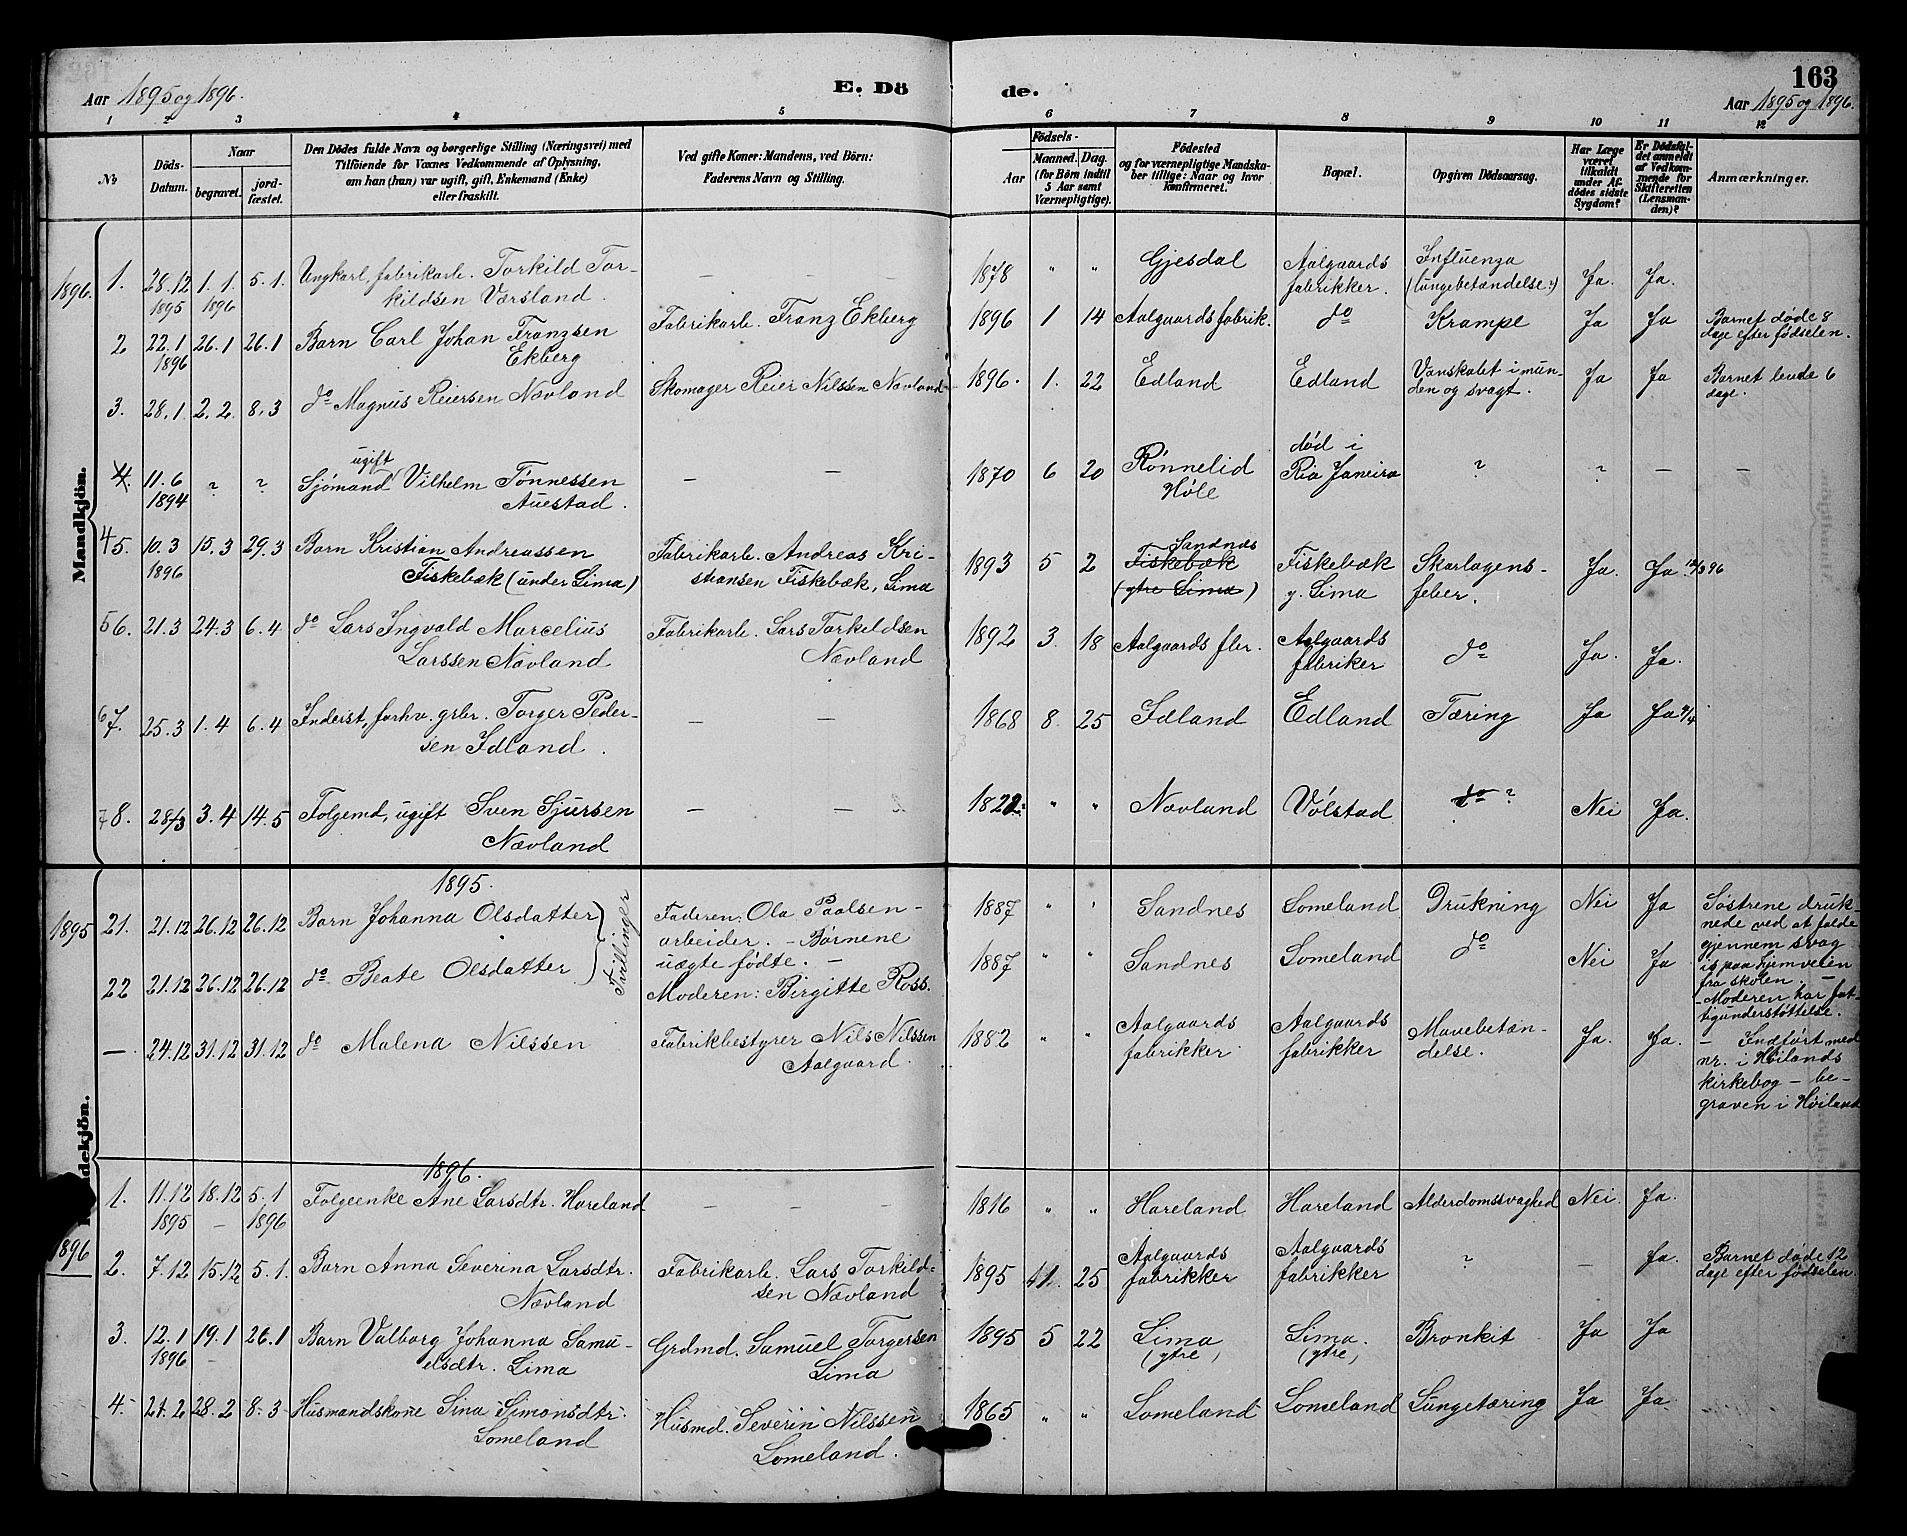 Aar 1895 og 1896.
E. Dö
de.
163
Aar 1895 og 1896.
1 2 3 4 5 6 7 8 9 10 11 12
№
Döds-
Datum.
Naar
begravet.
jord-
fæstet.
Den Dödes fulde Navn og borgerlige Stilling (Næringsvei) med
Tilföiende for Voxnes Vedkommende af Oplysning,
om han (hun) var ugift, gift, Enkemand (Enke)
eller fraskilt.
Ved gifte Koner: Mandens, ved Börn:
Faderens Navn og Stilling.
Födsels-
Aar
Maaned. Dag.
(for Börn indtil
5 Aar samt
Værnepligtige).
Födested
og for værnepligtige Mandska-
ber tillige: Naar og hvor
konfirmeret.
Bopæl.
Opgiven Dödsaarsag.
Har Læge
været
tilkaldt
under Af-
dödes sidste
Sygdom?
Er Dödsfal-
det anmeldt
af Vedkom-
mende for
Skifteretten
(Lensman-
den)?
Anmærkninger.
Mandkjön.
1896.
1. 28.12 1895 1.1. 1896 5.1. Ungkarl, fabrikarb. Torkild Tor-
kildsen Værsland. — — 1878 " " Gjesdal Aalgaards
fabrikker. Influenza
(lungebetændelse?) Ja. Ja.
2 22.1 1896 26.1 26.1 Barn Carl Johan Franzsen
Ekberg Fabrikarb. Franz Ekberg 1896 1 14 Aalgaards fabrik. do Krampe Ja Ja Barnet døde 8
dage efter fødselen.
3. 28.1. 2.2. 8.3 do Magnus Reiersen Nævland Skomager Reier Nilssen Nævland 1896. 1. 22 Edland Edland Vanskabt i mun-
den og svagt. Ja Ja Barnet levde 6
dage.
4. 11.6 1894 ? ? ugift
Sjömand Vilhelm Tønnessen
Auestad. — — 1870 6 20 Rønnelid
Høle død i
Rio Janeiro ? ? — —
4 5. 10.3 1896 15.3 29.3 Barn Kristian Andreassen
Fiskebæk (under Lima) Fabrikarb. Andreas Kri-
stiansen Fiskebæk, Lima 1893 5 2 Sandnæs
Fiskebæk
(ytre Lima) Fiskebæk
y. Lima Skarlagens-
feber. Ja. Ja 12/3 96
5 6. 21.3 24.3 6.4 do Lars Ingvald Marcelius
Larssen Nævland Fabrikarb. Lars Torkildsen
Nævland 1892 3. 18 Aalgaards fbr. Aalgaards
fabriker do Ja. Ja.
6 7. 25.3 1.4 6.4 Inderst, forhv. grbr. Torger Peder-
sen Idland. — — 1868 8. 25 Idland Edland Tæring Ja Ja 9/4
7 8. 28/3 3.4 14.5 Folgemd, ugift Sven Sjursen
Nævland — — 1822. " " Nævland Vølstad do ? Nei Ja.
1895.
1895
21. 21.12 26.12 26.12 Barn Johanna Olsdatter Tvillinger Faderen: Ola Paalsen -
arbeider. - Børnene
uægte fødte. -
Moderen: Birgitte Ross. 1887 " " Sandnes Lomeland Drukning Nei Ja Søstrene druk-
nede ved at falde
gjennem svag
is paa hjemveien
fra skolen. -
- Moderen har fat-
tigunderstøttelse.
22 21.12 26.12 26.12 do Beate Olsdatter 1887 " " Sandnes Lomeland do Nei Ja
— 24.12 31.12 31.12 do Malena Nilssen Fabrikbestyrer Nils Nilssen
Aalgaard. 1882 " " Aalgaards
fabrikker Aalgaards
fabrikker Mavebetæn-
delse. Ja. Ja. - Indført med
nr. i Høilands
kirkebog - be-
graven i Høiland
dekjön.
1896.
1896
1. 11.12 1895 18.12 — 5.1 1896 Folgeenke Ane Larsdtr. Hareland — — — 1816 " " Hareland Hareland Alderdomssvaghed Nei. Ja.
2. 7.12 15.12 5.1. Barn Anna Severina Larsdtr.
Nævland Fabrikarb. Lars Torkild-
sen Nævland 1895 11. 25 Aalgaards
fabrikker Aalgaards
fabrikker ? — Ja. Barnet døde 12
dage efter fødselen.
3. 12.1 1896 19.1 — 26.1 Barn Valborg Johanna Samu-
elsdtr. Lima Grdmd. Samuel Torgersen
Lima 1895 5 22 Lima
(ytre) Lima.
(ytre) Bronkit Ja Ja
4. 21.2 28.2 8.3 Husmandskone Sina Simonsdtr.
Lomeland Husmd. Severin Nilssen
Lomeland. 1865 " " Lomeland Lomeland Lungetæring Ja Ja